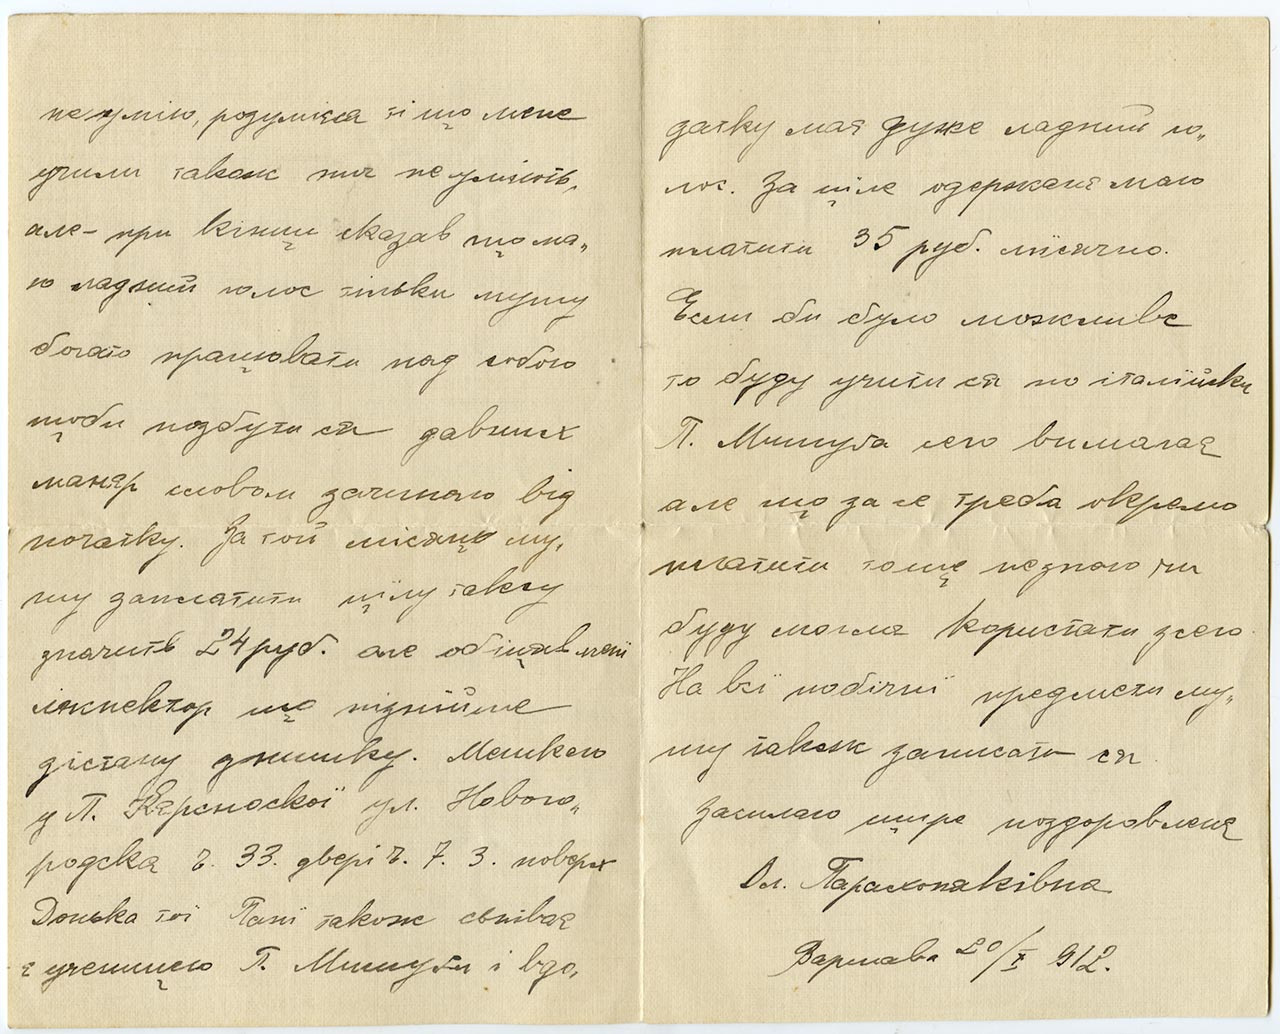 не умію, розумієся ті що мене
учили також нич не уміють,
але- при кінци сказав що ма„
ю ладний голос тілько мушу
богато працювати над собою
щоби позбути ся давних
манєр словом зачинаю від
початку. За той місяць му„
шу заплатити цілу таксу
значить 24 руб. але обіцяв мені
інспектор що пізнійше
дістану знишку. Мешкаю
у П. ул. Новогo„
родска ч. 33. двері ч. 7. 3. поверх
Донька тої Пані також сьпівая
є ученицею П. Мишуги і вдо„
датку має дуже ладний го„
лос. За ціле одержанє маю
платити 35 руб. місячно.
Если би було можливе
то буду учити ся по італїйски
П. Мишуга сего вимагає
але що за се треба окремо
платити то ще незнаю чи
буду могла користати з сего.
На всї побічнї предмети му„
шу також записати ся
Засилаю щире поздоровленє
Ол. Парахоняківна
Варшава 20/X 912.